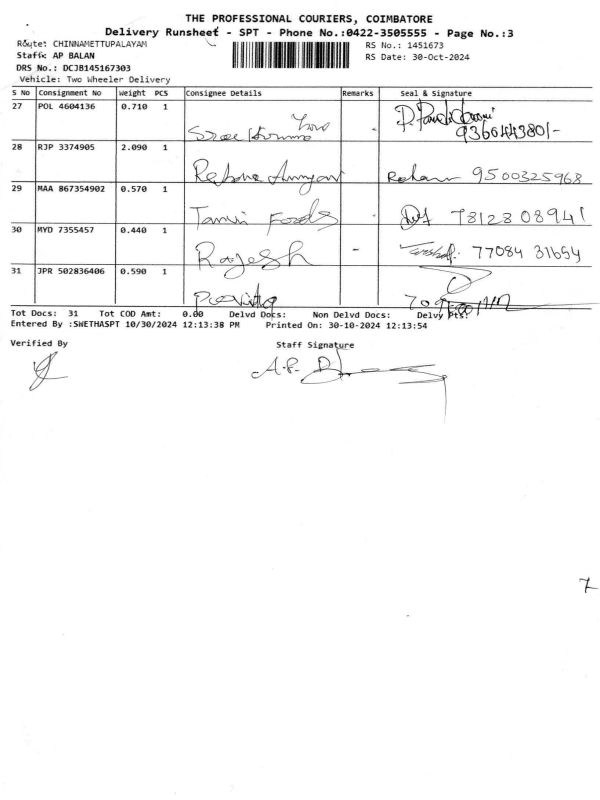 THE PROFESSIONAL COURIERS, COIMBATORE
Delivery Runsheet - SPT - Phone No.:0422-3505555 - Page No.:3
Route: CHINNAMETTUPALAYAM RS No.: 1451673
Staff: AP BALAN RS Date: 30-Oct-2024
DRS No.: DCJB145167303
Vehicle: Two Wheeler Delivery
S No Consignment No Weight PCS Consignee Details Remarks Seal & Signature
27 POL 4604136 0.710 1
9360443801-
28 RJP 3374905 2.090 1
9500325968
29 MAA 867354902 0.570 1
Foods 7812808941
30 MYD 7355457 0.440 1
Rajesh - 77084 31654
31 JPR 502836406 0.590 1
Tot Docs: 31 Tot COD Amt: 0.00 Delvd Docs: Non Delvd Docs: Delvy Pts:
Entered By :SWETHASPT 10/30/2024 12:13:38 PM Printed On: 30-10-2024 12:13:54
Verified By Staff Signature
7